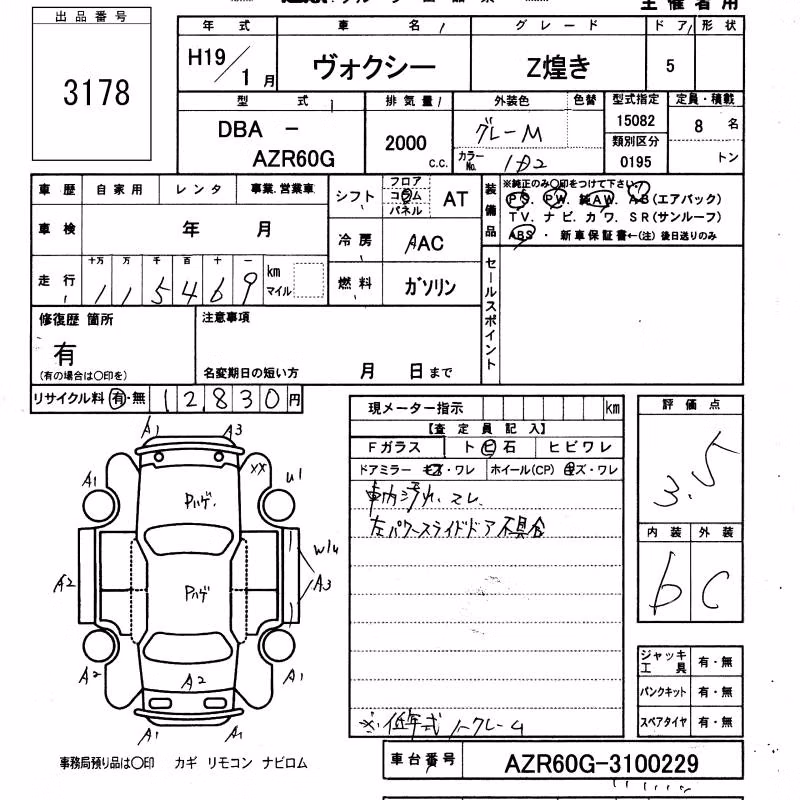 主催者用
出品番号
3178
年式 車名 グレード ドア 形状
H19/1月 ヴォクシー Z煌き 5
型式 排気量 外装色 色替 型式指定 定員・積載
DBA - AZR60G 2000 c.c. グレーM カラーNo. 1D2 15082 8名
類別区分 0195 トン
車歴 自家用 レンタ 事業.営業車
車検 年 月
走行 十万 万 千 百 十 一
1 1 5 4 6 9 km マイル
シフト フロア コラム パネル AT
冷房 AAC
燃料 ガソリン
装備品 ※純正のみ〇印をつけて下さい
PS. PW. 純AW. AB(エアバック)
TV. ナビ. カワ. SR(サンルーフ)
ABS ・ 新車保証書←(注) 後日送りのみ
セールスポイント
修復歴 箇所
有
(有の場合は〇印を)
注意事項
名変期日の短い方 月 日まで
リサイクル料 有・無 12,830円
現メーター指示 km
【査定員記入】
Fガラス ト ビ 石 ヒビワレ
ドアミラー キズ・ワレ ホイール(CP) キズ・ワレ
車内汚れ、スレ
左パワースライドドア不具合
※低年式ノークレーム
評価点
3.5
内装 外装
b C
ジャッキ工具 有・無
パンクキット 有・無
スペアタイヤ 有・無
A1 A3
A1 XX U1
Pハゲ.
W/U
A2 A3
Pハゲ
A2 A2 A1
A1 A1
事務局預り品は〇印 カギ リモコン ナビロム
車台番号 AZR60G-3100229